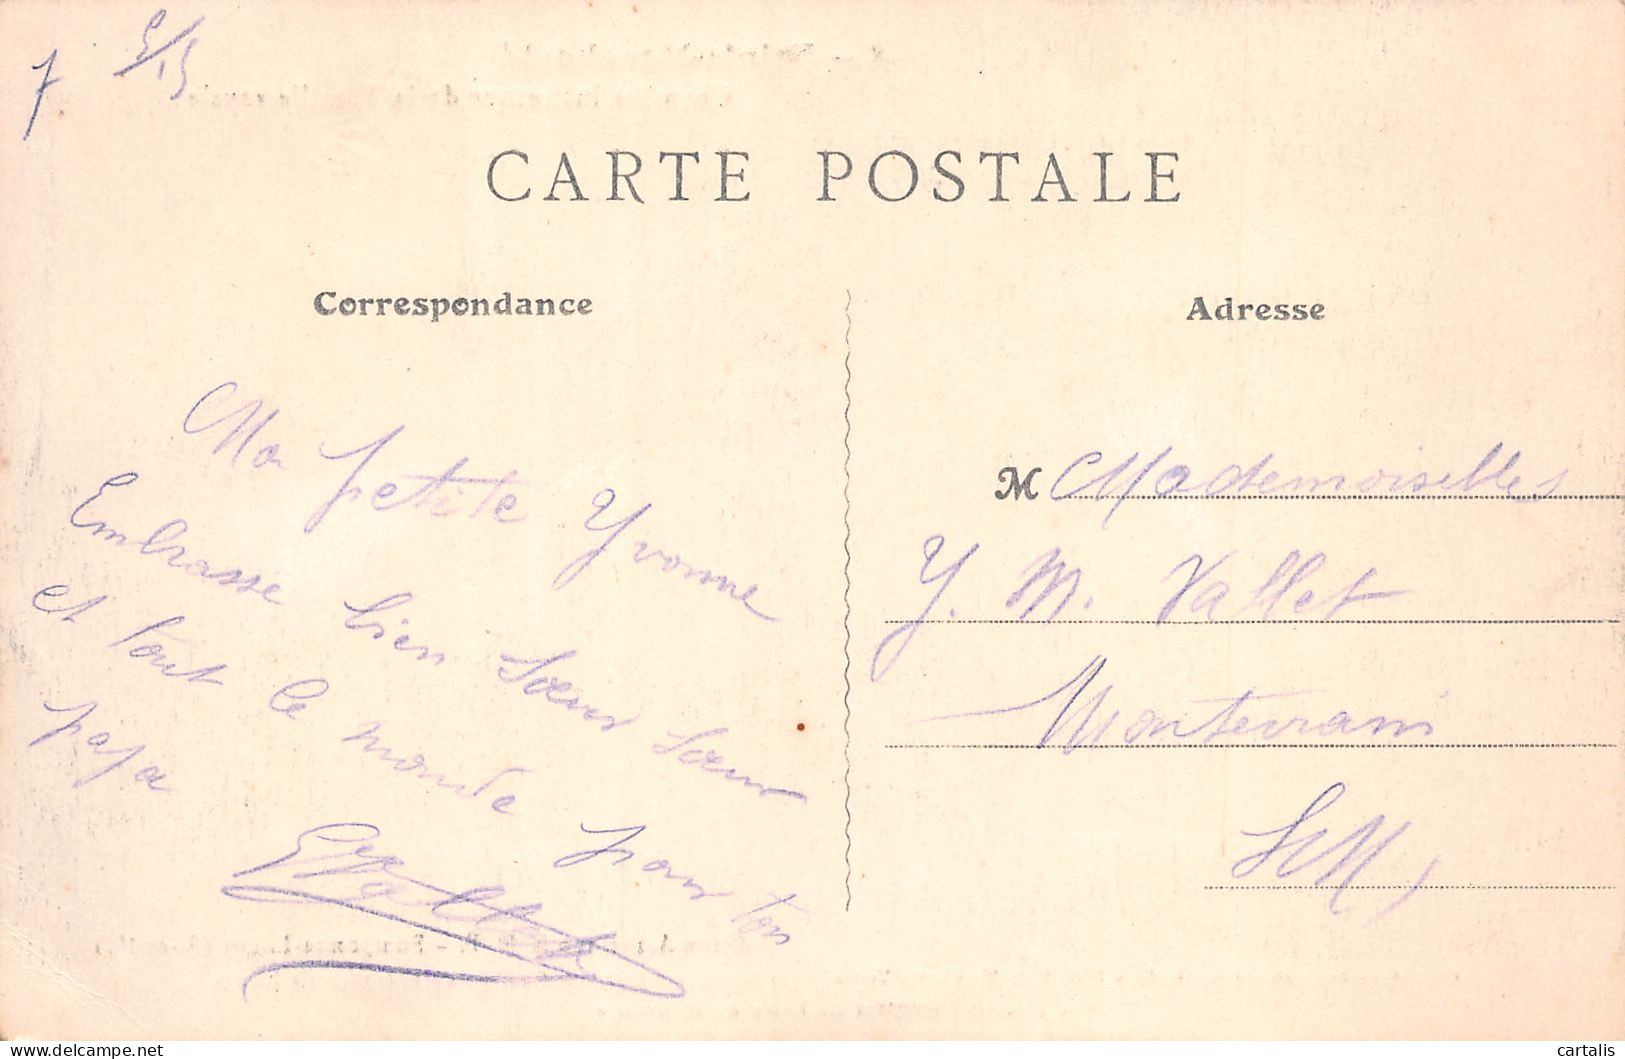 CARTE POSTALE
Correspondance
Ma petite Yvonne
Embrasse bien soeur soeur
et tout le monde pour ton
papa
EVallet
Adresse
M Mademoiselles
Y. M. Vallet
Monterrain
S M
cartalis